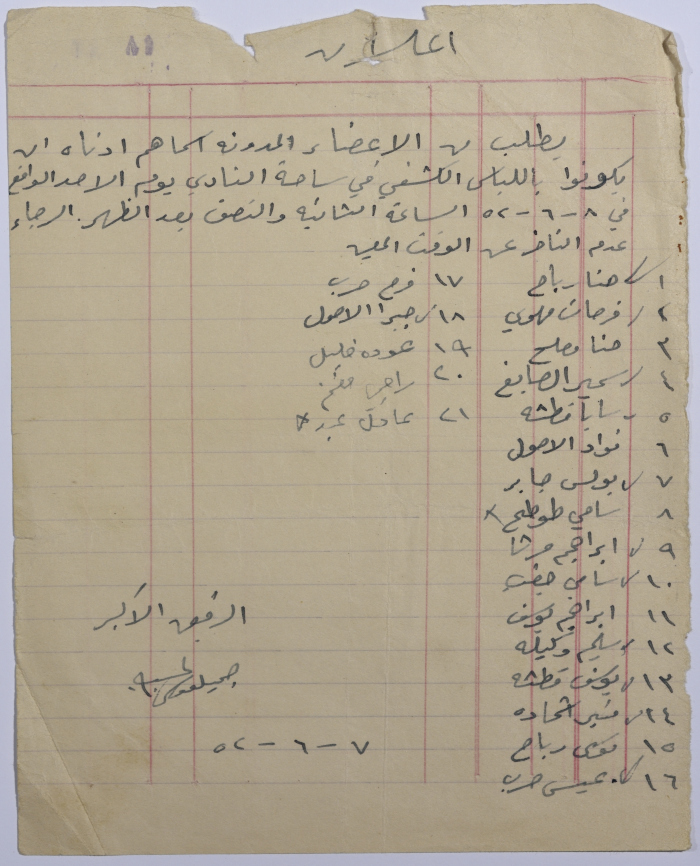 اعلان
يطلب من الاعضاء المدونه اسماهم ادناه ان
يكونوا باللباس الكشفي في ساحة النادي يوم الاحد الواقع
في ٨-٦-٥٢ الساعة الثانيه والنصف بعد الظهر. الرجاء
عدم التاخر عن الوقت المعين
١ حنا رباح
٢ فرحات مهوي
٣ حنا مصلح
٤ سمير الصايغ
٥ سابا قطشه
٦ فواد الاصول
٧ بولس جابر
٨ سامي طوطح ×
٩ ابراهيم مرشا
١٠ سامي
١١ ابراهيم يوسف
١٢ سليم وكيله
١٣ يوسف قطشه
١٤ منير شحاده
١٥ موسى رباح
١٦ عيسى حرب
١٧ فرح حرب
١٨ جبرا الاصول
١٩ عوده خليل
٢٠ راجي
٢١ عادل ×
الرفيق الاكبر
٧-٦-٥٢